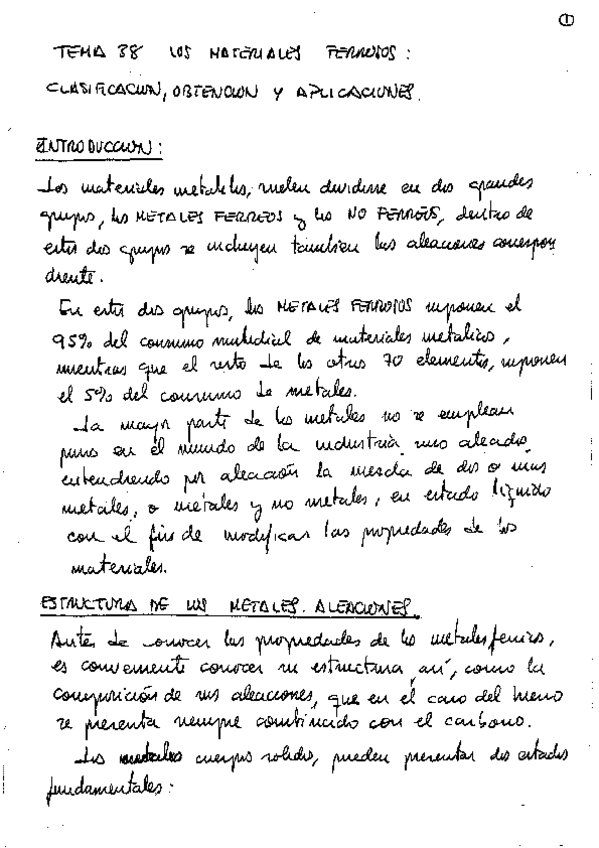 ①
TEMA 38 LOS MATERIALES FERROSOS:
CLASIFICACION, OBTENCION Y APLICACIONES.
INTRODUCCION:
Los materiales metales, suelen dividirse en dos grandes
grupos, los METALES FERREOS y los NO FERREOS, dentro de
estos dos grupos se incluyen tambien las aleaciones correspon
diente.
En estos dos grupos, los METALES FERROSOS suponen el
95% del consumo mundial de materiales metalicos,
mientras que el resto de los otros 70 elementos, suponen
el 5% del consumo de metales.
La mayor parte de los metales no se emplean
puros en el mundo de la industria sino aleados,
entendiendo por aleación la mezcla de dos o mas
metales, o metales y no metales, en estado líquido
con el fin de modificar las propiedades de los
materiales.
ESTRUCTURA DE LOS METALES. ALEACIONES.
Antes de conocer las propiedades de los metales ferricos,
es conveniente conocer su estructura, así, como la
composición de sus aleaciones, que en el caso del hierro
se presenta siempre combinado con el carbono.
Los cuerpos solidos, pueden presentar dos estados
fundamentales: